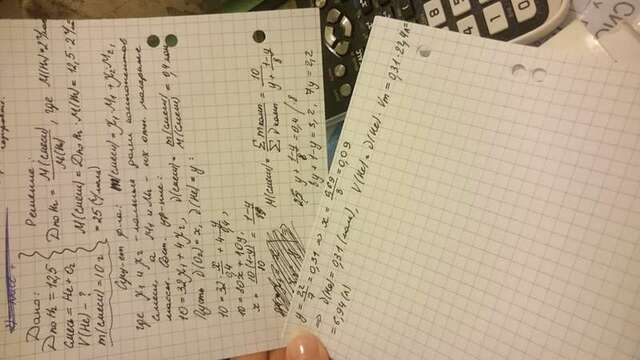 Дано:
D по H₂ = 12,5
смесь = He + O₂
V(He) - ?
m(смеси) = 10 г
Решение:
D по H₂ = M(смеси)/M(H₂), где M(H₂) = 2
M(смеси) = D по H₂ · M(H₂) = 12,5 · 2
= 25 (г/моль)
ф-ла: m(смеси) = χ₁·M₁ + χ₂·M₂,
где χ₁ и χ₂ - мольные доли компонентов
смеси, а M₁ и M₂ - их отн. молярные
массы. Сост. ур-ние:
10 = 32χ₁ + 4χ₂, ϑ(смеси) = m(смеси)/M(смеси) = 0,4
Пусть ϑ(O₂) = x, ϑ(He) = y:
10 = 32·x/0,4 + 4·y/0,4;
10 = 80x + 10y;
x = 10(1-y)/80 = (1-y)/8
M(смеси) = Σ m комп./Σ ϑ комп. = 10/(y + (1-y)/8)
25 y + (1-y)/8 = 0,4 /·8
8y + 1 - y = 3,2, 7y = 2,2
y = 2,2/7 = 0,31 ⇒ x = 0,69/8 = 0,09
⇒ ϑ(He) = 0,31 (моль), V(He) = ϑ(He) · Vm = 0,31 · 22,4 =
= 6,94 (л)